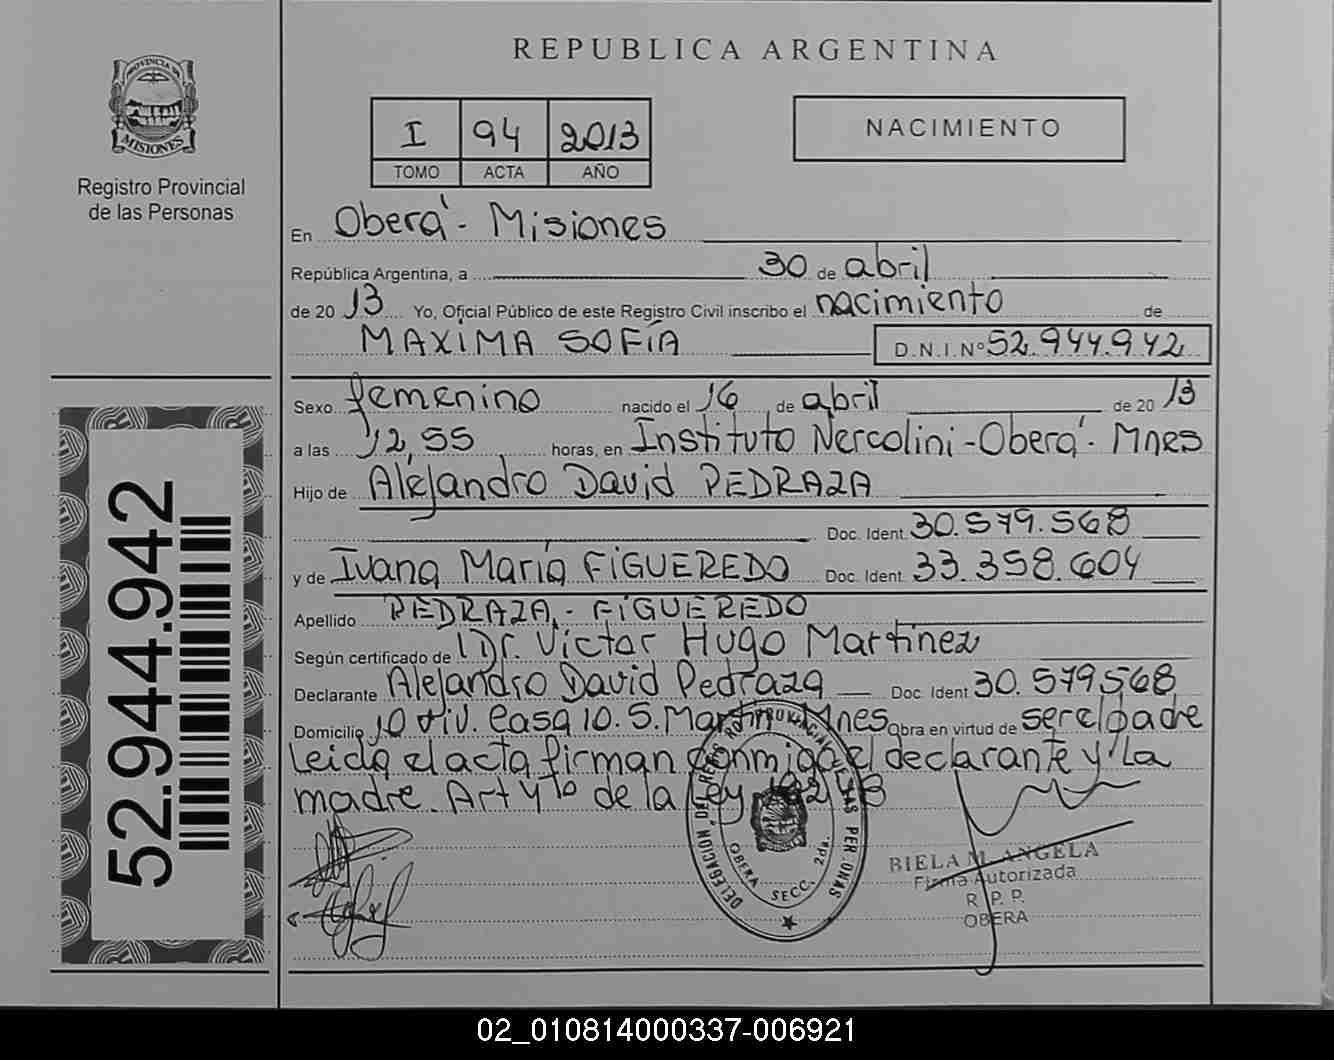 REPUBLICA ARGENTINA
PROVINCIA DE
MISIONES
Registro Provincial
de las Personas
I 94 2013
TOMO ACTA AÑO
NACIMIENTO
En Oberá - Misiones
República Argentina, a 30 de abril
de 20 13 Yo, Oficial Público de este Registro Civil inscribo el nacimiento de
MAXIMA SOFÍA D.N.I. Nº 52.944.942
Sexo femenino nacido el 16 de abril de 20 13
a las 12,55 horas, en Instituto Nercolini - Oberá - Mnes
Hijo de Alejandro David PEDRAZA
Doc. Ident. 30.579.568
y de Ivana María FIGUEREDO Doc. Ident. 33.358.604
Apellido PEDRAZA - FIGUEREDO
Según certificado de Dr. Victor Hugo Martinez
Declarante Alejandro David Pedraza Doc. Ident. 30.579568
Domicilio 10 viv. Casa 10. S. Martin Mnes Obra en virtud de ser el padre
Leida el acta firman conmigo el declarante y la
madre. Art 4to de la Ley
DELEGACION DEL REGISTRO PROVINCIAL DE LAS PERSONAS
OBERA SECC. 2da.
BIELA M. ANGELA
Firma Autorizada
R. P. P.
OBERA
52.944.942
02_010814000337-006921